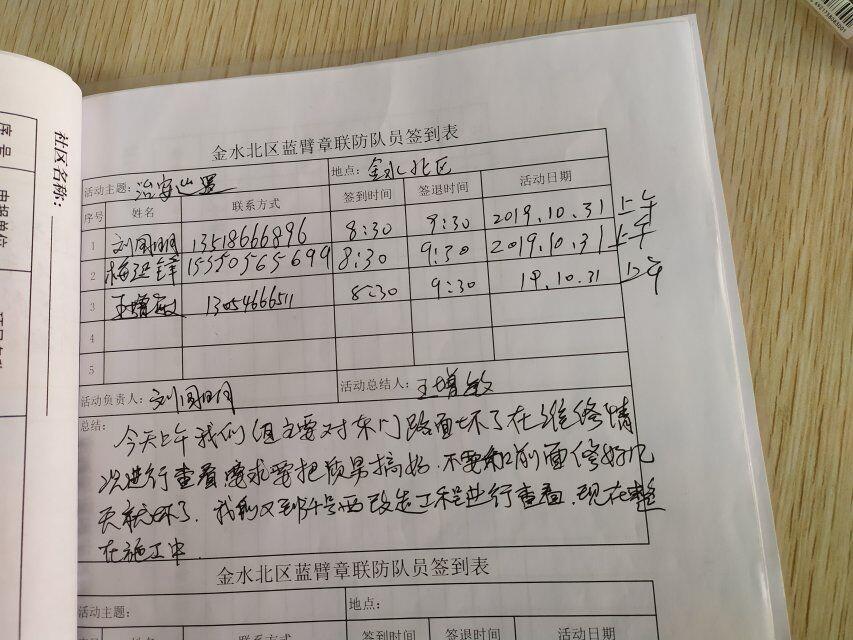 金水北区蓝臂章联防队员签到表
活动主题: 治安巡逻 地点: 金水北区
序号 姓名 联系方式 签到时间 签退时间 活动日期
1 刘国明 13518666896 8:30 9:30 2019.10.31 上午
2 梅 锋 15550565699 8:30 9:30 2019.10.31 上午
3 王增敏 13054666511 8:30 9:30 19.10.31 上午
4
5
活动负责人: 刘国明 活动总结人: 王增敏
总结: 今天上午我们组主要对东门路面坏了在维修情
况进行查看要求要把质量搞好.不要和前面修好几
天就坏了.我们又到4号西改造工程进行查看.现在整
在施工中.
金水北区蓝臂章联防队员签到表
活动主题: 地点:
联系方式 签到时间 签退时间 活动日期
社区名称:
序号
申报单位